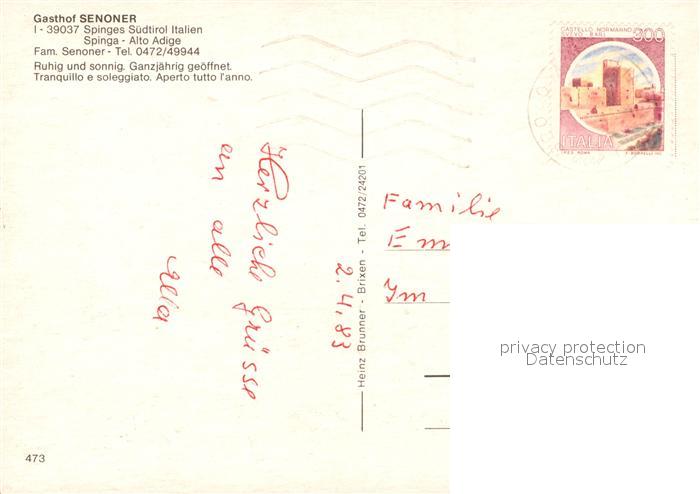 Gasthof SENONER
I - 39037 Spinges Südtirol Italien
Spinga - Alto Adige
Fam. Senoner - Tel. 0472/49944
Ruhig und sonnig. Ganzjährig geöffnet.
Tranquillo e soleggiato. Aperto tutto l'anno.
CASTELLO NORMANNO
SVEVO. BARI
300
ITALIA
I.P.Z.S. ROMA
Herzliche Grüsse
an alle
2.4.83
Heinz Brunner - Brixen - Tel. 0472/24201
Familie
Em
Im
privacy protection
Datenschutz
473